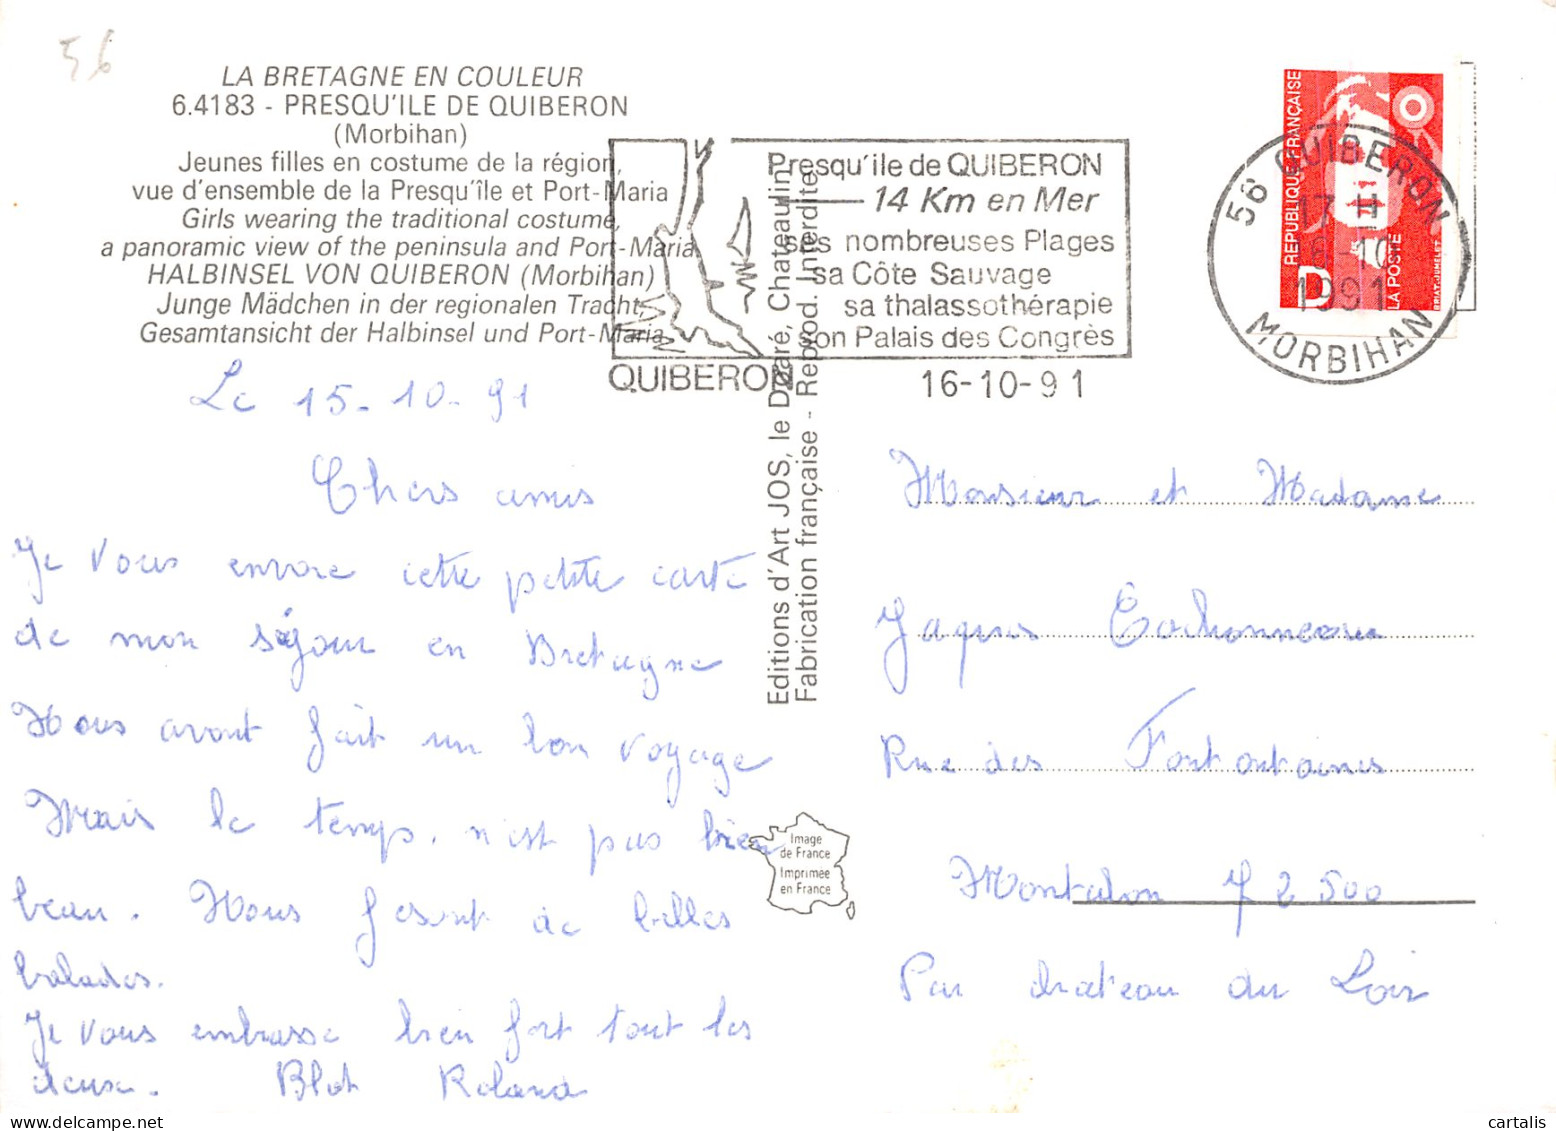 56
LA BRETAGNE EN COULEUR
6.4183 - PRESQU'ILE DE QUIBERON
(Morbihan)
Jeunes filles en costume de la région,
vue d'ensemble de la Presqu'île et Port-Maria
Girls wearing the traditional costume,
a panoramic view of the peninsula and Port-Maria
HALBINSEL VON QUIBERON (Morbihan)
Junge Mädchen in der regionalen Tracht,
Gesamtansicht der Halbinsel und Port-Maria
Presqu'ile de QUIBERON
14 Km en Mer
ses nombreuses Plages
sa Côte Sauvage
sa thalassothérapie
son Palais des Congrès
QUIBERON
16-10-91
REPUBLIQUE FRANÇAISE
D
LA POSTE
BRIAT-JUMELET
56 QUIBERON
17 H
16-10
1991
MORBIHAN
Editions d'Art JOS, le Doaré, Chateaulin
Fabrication française - Reprod. Interdite
Le 15-10-91
Chers amis
Je vous envoie cette petite carte
de mon séjour en Bretagne
Nous avont fait un bon voyage
Mais le temps. n'est pas bien
beau. Nous fesont de belles
balades.
Je vous embrasse bien fort tout les
deux. Blot Roland
Image
de France
Imprimée
en France
Monsieur et Madame
Jaques Cochonneau
Rue des Fontontaines
Montalon 72500
Par chateau du Loir
cartalis